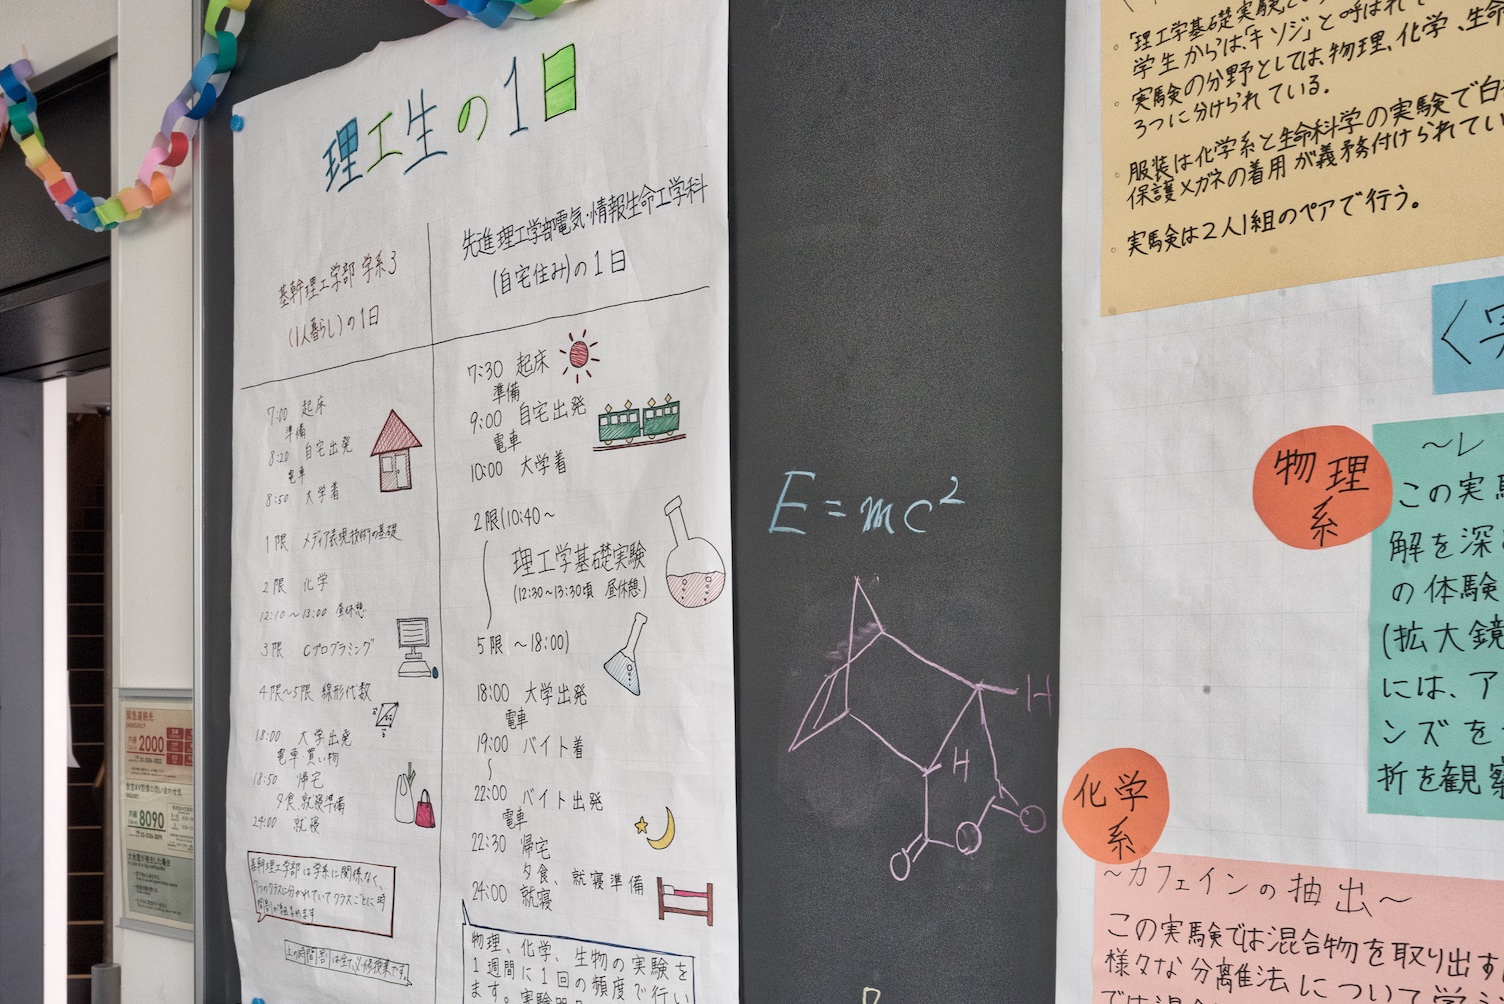 理工生の1日
基幹理工学部 学系3
(1人暮らし)の1日
7:00 起床
準備
8:20 自宅出発
電車
8:50 大学着
1限 メディア表現技術の基礎
2限 化学
12:10〜13:00 昼休憩
3限 Cプログラミング
4限〜5限 線形代数
18:00 大学出発
電車 買い物
18:50 帰宅
夕食、就寝準備
24:00 就寝
基幹理工学部は学系に関係なく、
7つのクラスに分かれていてクラスごとに時
間割が組まれます
上の時間割は全て必修授業です。
先進理工学部電気・情報生命工学科
(自宅住み)の1日
7:30 起床
準備
9:00 自宅出発
電車
10:00 大学着
2限(10:40〜
理工学基礎実験
(12:30〜13:30頃 昼休憩)
5限 〜18:00)
18:00 大学出発
電車
19:00 バイト着
〜
22:00 バイト出発
電車
22:30 帰宅
夕食、就寝準備
24:00 就寝
物理、化学、生物の実験を
1週間に1回の頻度で行い
ます。
E=mc²
H
H
O
O
O
「理工学基礎実験
学生からは、「キソジ」と呼ばれて
実験の分野としては、物理、化学、生命
3つに分けられている。
服装は化学系と生命科学の実験で白
保護メガネの着用が義務付けられてい
実験は2人1組のペアで行う。
物理
系
〜レ
この実
解を深
の体験
(拡大鏡
には、ア
ンズを
折を観察
化学
系
〜カフェインの抽出〜
この実験では混合物を取り出す
様々な分離法について学
緊急連絡先
EMERGENCY
内線 2000
内線 8090